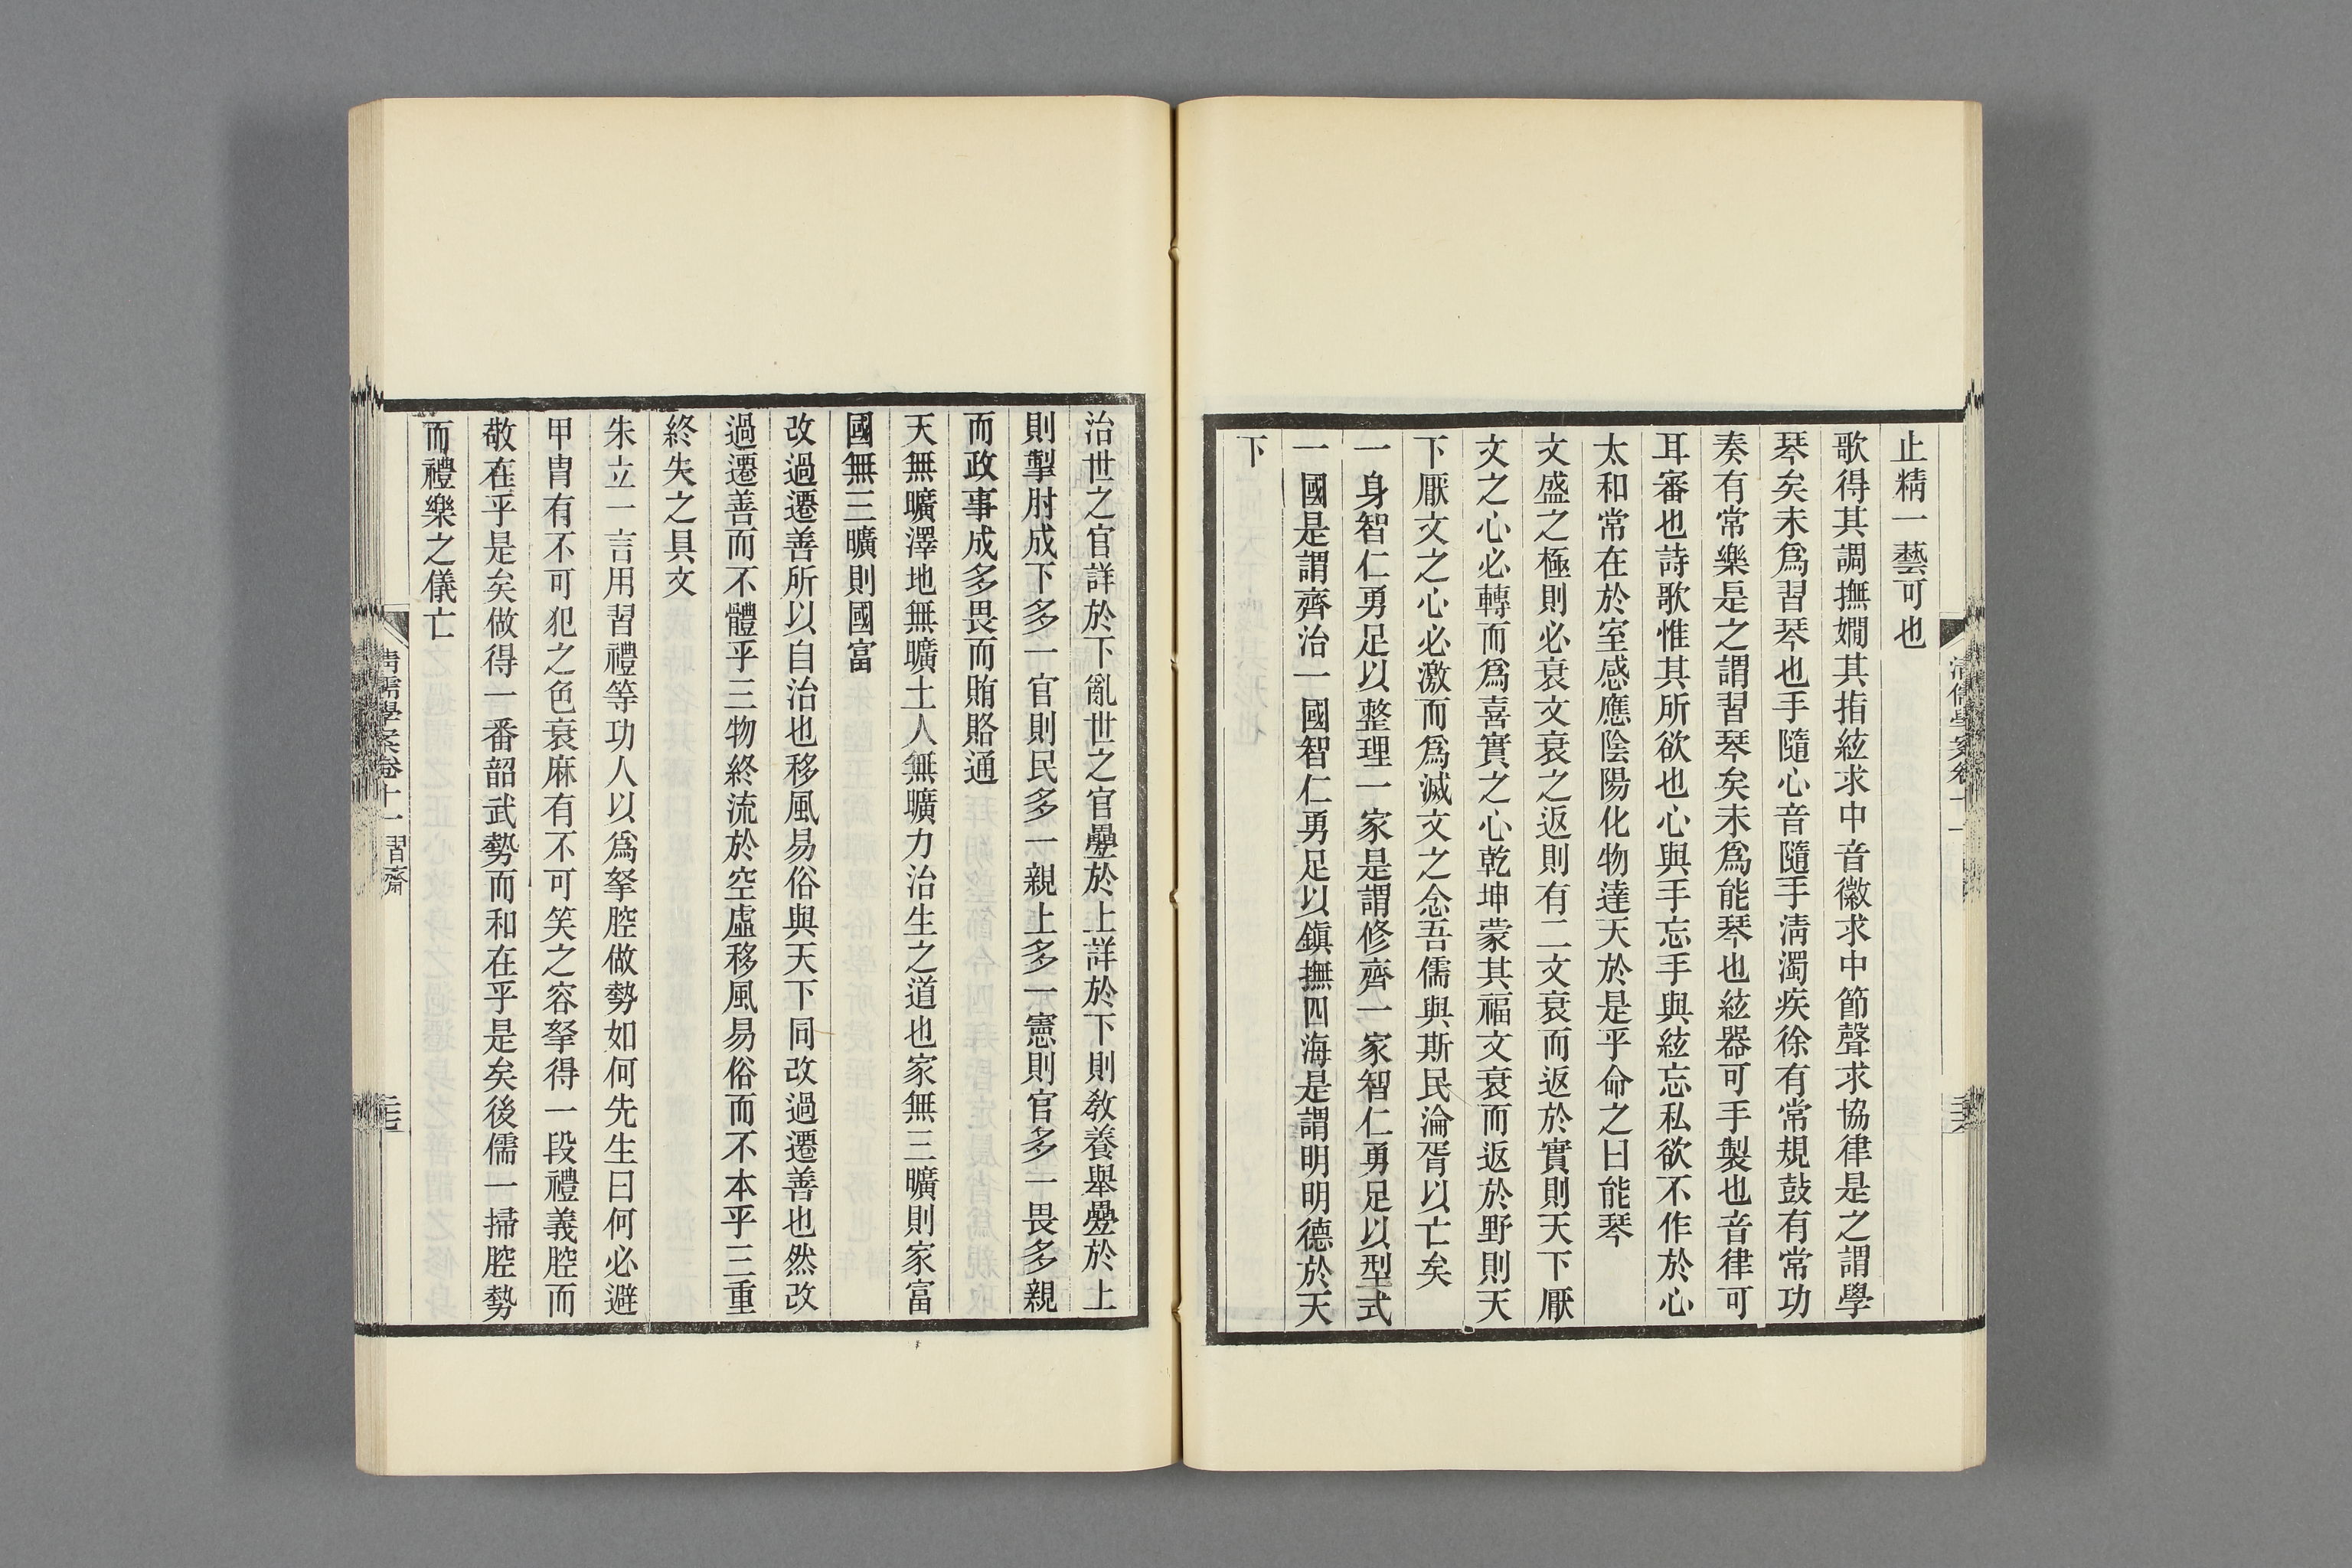 止精一藝可也
歌得其調撫嫺其指絃求中音徽求中節聲求協律是之謂學
琴矣未爲習琴也手隨心音隨手淸濁疾徐有常規鼓有常功
奏有常樂是之謂習琴矣未爲能琴也絃器可手製也音律可
耳審也詩歌惟其所欲也心與手忘手與絃忘私欲不作於心
太和常在於室感應陰陽化物達天於是乎命之曰能琴
文盛之極則必衰文衰之返則有二文衰而返於實則天下厭
文之心必轉而爲喜實之心乾坤蒙其福文衰而返於野則天
下厭文之心必激而爲滅文之念吾儒與斯民淪胥以亡矣
一身智仁勇足以整理一家是謂修齊一家智仁勇足以型式
一國是謂齊治一國智仁勇足以鎭撫四海是謂明明德於天
下
治世之官詳於下亂世之官疊於上詳於下則敎養舉疊於上
則掣肘成下多一官則民多一親上多一憲則官多一畏多親
而政事成多畏而賄賂通
天無曠澤地無曠土人無曠力治生之道也家無三曠則家富
國無三曠則國富
改過遷善所以自治也移風易俗與天下同改過遷善也然改
過遷善而不體乎三物終流於空虛移風易俗而不本乎三重
終失之具文
朱立一言用習禮等功人以爲拏腔做勢如何先生曰何必避
甲冑有不可犯之色衰麻有不可笑之容拏得一段禮義腔而
敬在乎是矣做得一番韶武勢而和在乎是矣後儒一掃腔勢
而禮樂之儀亡
淸儒學案卷十一 習齋